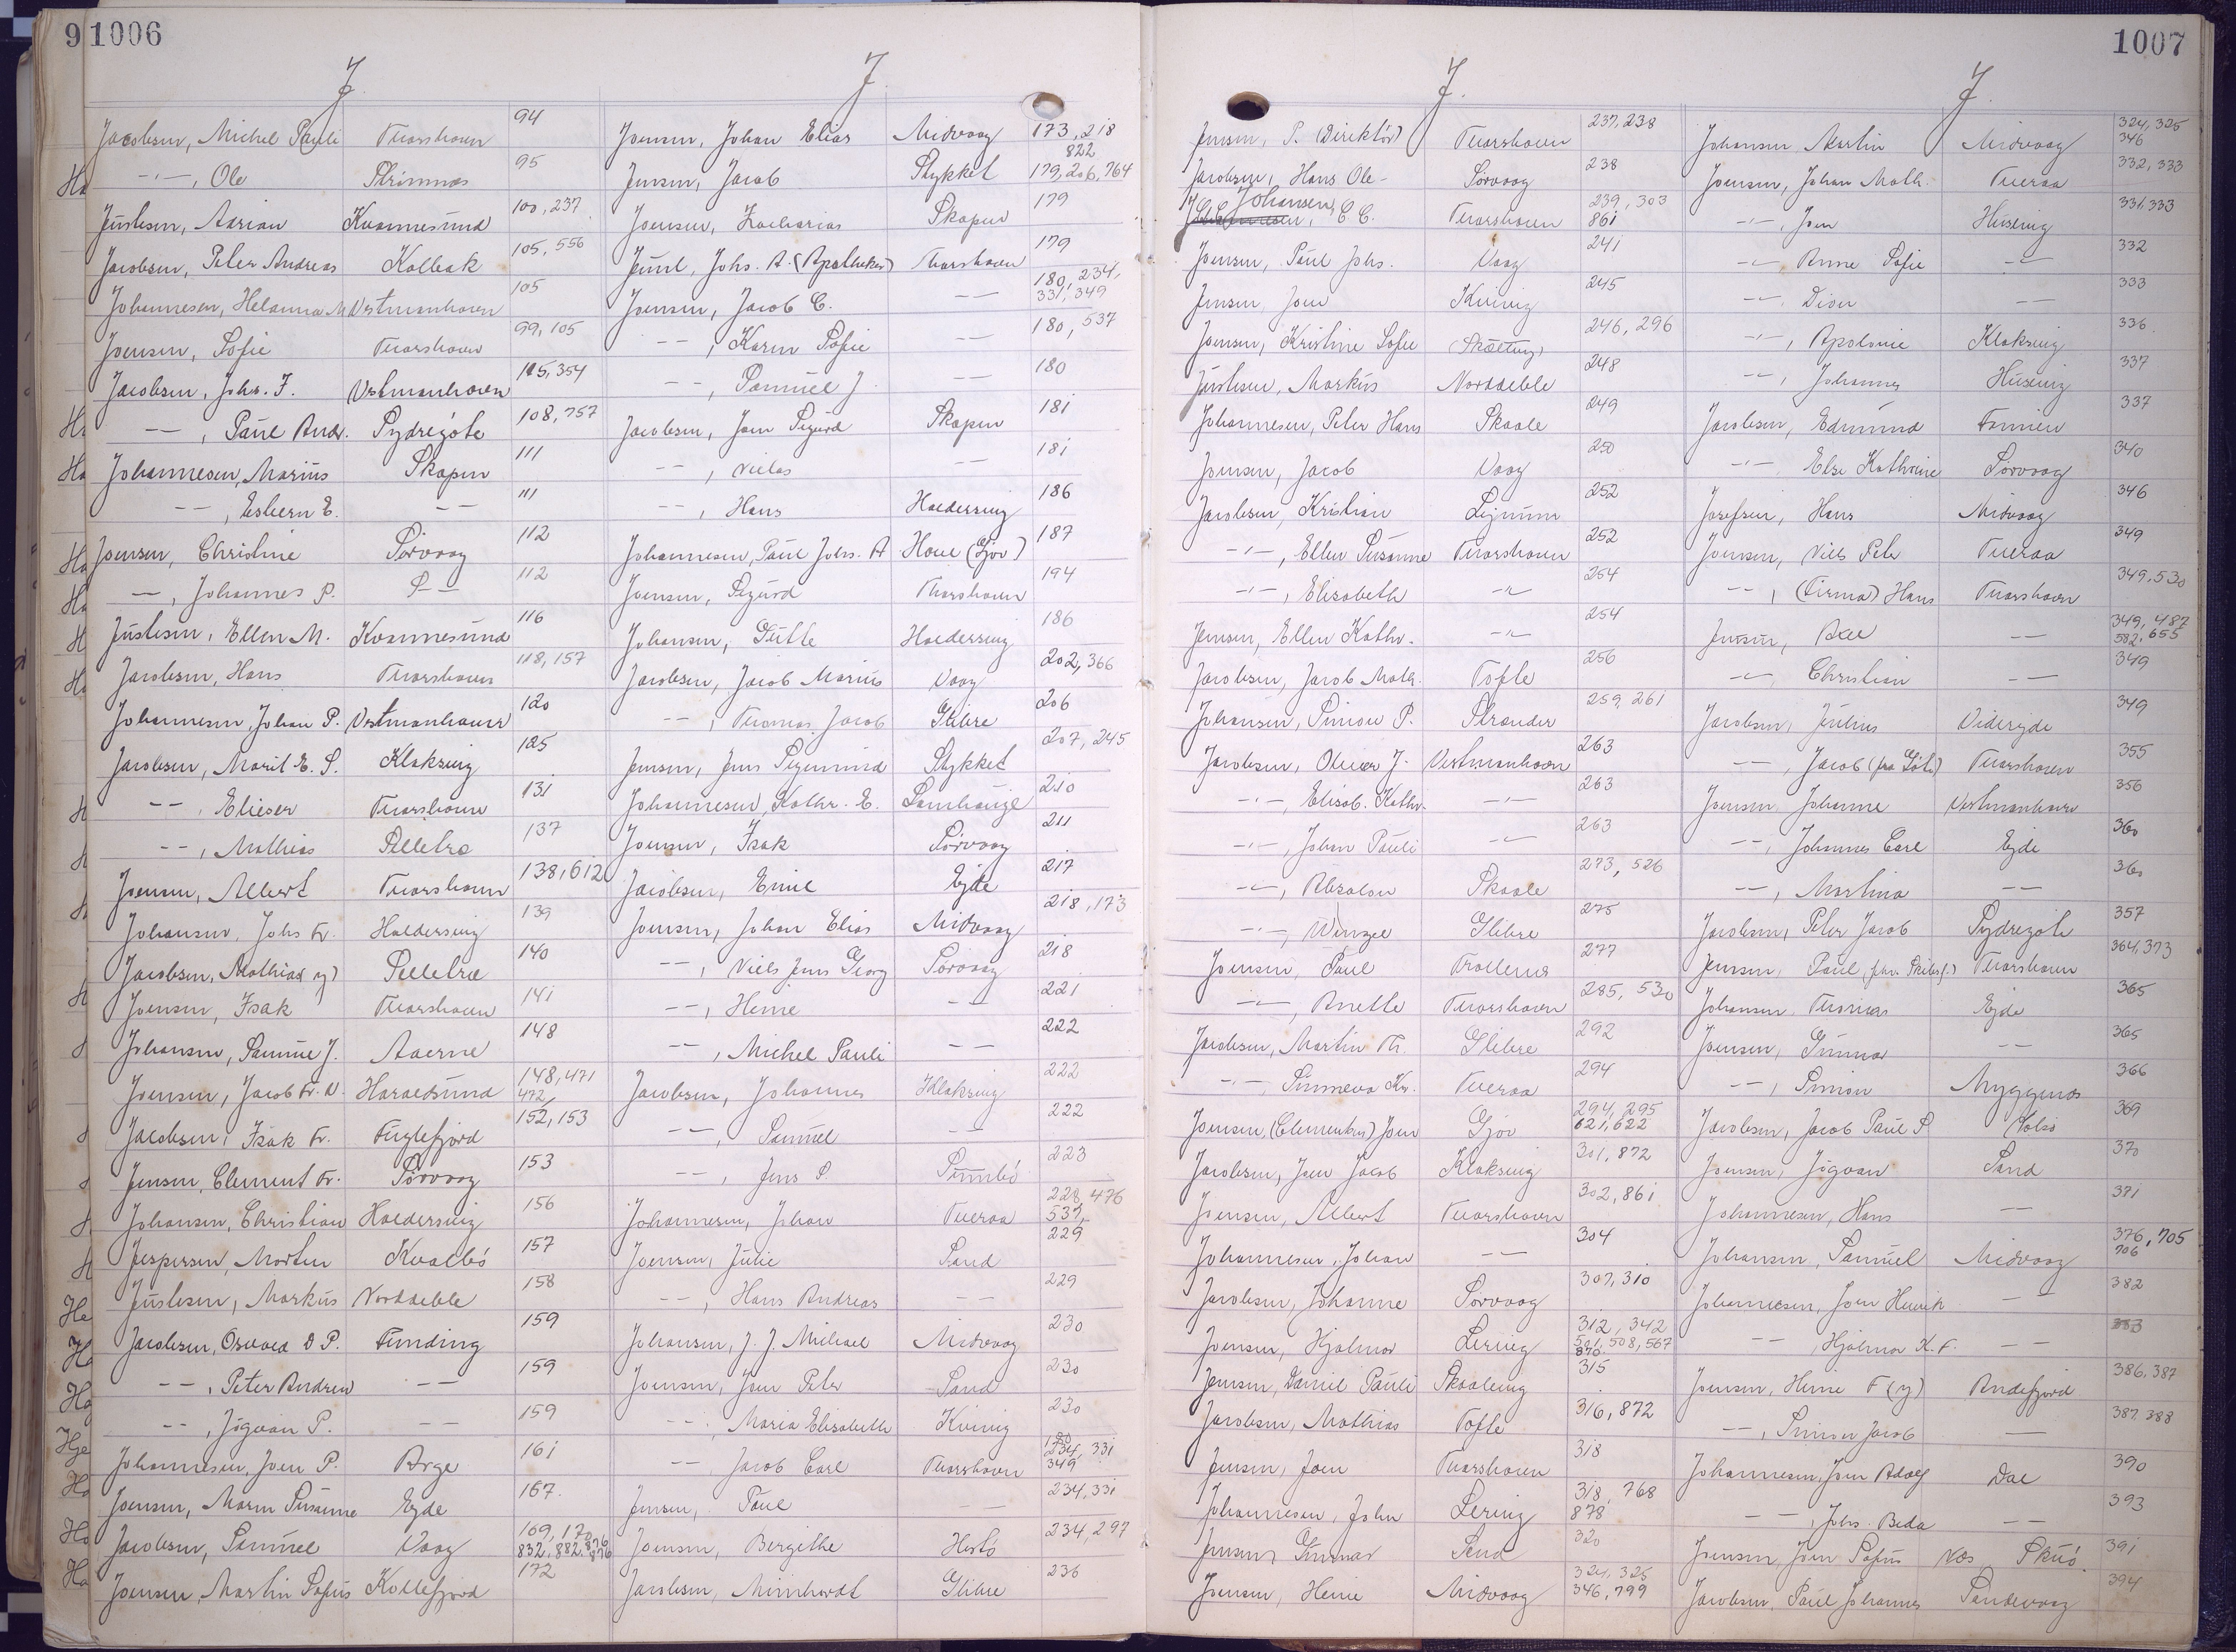 9 1006
J.
Jacobsen, Michel Pauli Thorshavn 94
-"-, Ole Strimnæs 95
Justesen, Adrian Kvannesund 100, 237
Jacobsen, Peter Andreas Kolbak 105, 556
Johannesen, Helanna M Vestmanhavn 105
Joensen, Sofie Thorshavn 99, 105
Jacobsen, Johs. F. Vestmanhavn 105, 354
--, Paul Andr. Sydregöte 108, 757
Johannesen, Marius Skapun 111
--, Esbern E. -- 111
Joensen, Christine Sörvaag 112
--, Johannes P. S-- 112
Justesen, Ellen M. Kvannesund 116
Jacobsen, Hans Thorshavn 118, 157
Johannesen, Johan P. Vestmanhavn 120
Jacobsen, Marit E. S. Klaksvig 125
--, Elieser Thorshavn 131
--, Mathias Selletræ 137
Joensen, Albert Thorshavn 138, 612
Johansen, Johs Fr. Haldersvig 139
Jacobsen, Mathias y) Selletræ 140
Joensen, Isak Thorshavn 141
Johansen, Samuel J. Aaerne 148
Joensen, Jacob Fr. N. Haraldsund 148, 471
472
Jacobsen, Isak Fr. Fuglefjord 152, 153
Jensen, Clement Fr. Sörvaag 153
Johansen, Christian Haldersvig 156
Jespersen, Morten Kvalbö 157
Justesen, Markus Norddeble 158
Jacobsen, Osvald D P. Funding 159
--, Peter Andrew -- 159
--, Jögvan P. -- 159
Johannesen, Joen P. Arge 161
Joensen, Maren Susanne Ejde 167
Jacobsen, Samuel Vaag 169, 170
832, 882, 876
Joensen, Martin Sofus Kollefjord 172
J.
Joensen, Johan Elias Midvaag 173, 218
822
Jensen, Jacob Stykket 179, 206, 764
Joensen, Zacharias Skapun 179
Juul, Johs. A. (Apotheker) Thorshavn 179
Joensen, Jacob C. -- 180, 234,
331, 349
--, Karen Sofie -- 180, 537
--, Samuel J. -- 180
Jacobsen, Joen Sigurd Skapun 181
--, Niclas -- 181
--, Hans Haldersvig 186
Johannesen, Paul Johs. A Hove (Gjov) 187
Joensen, Sigurd Thorshavn 194
Johansen, Gutte Haldersvig 186
Jacobsen, Jacob Marius Vaag 202, 366
--, Thomas Jacob Glibre 206
Jensen, Jens Sigmund Stykket 207, 245
Johannesen, Kathr. E. Lambhauge 210
Joensen, Isak Sörvaag 211
Jacobsen, Emil Ejde 217
Joensen, Johan Elias Midvaag 218, 173
--, Niels Jens Georg Sörvaag 218
--, Heine -- 221
--, Michel Pauli -- 222
Jacobsen, Johannes Klaksvig 222
--, Samuel -- 222
--, Jens P. Sumbö 223
Johannesen, Johan Tveraa 228, 476
537,
Joensen, Julie Sand 229
--, Hans Andreas -- 229
Johansen, J. J. Michael Midvaag 230
Joensen, Joen Peter Sand 230
--, Maria Elisabeth Kvivig 230
--, Jacob Carl Thorshavn 180
234, 331
349
Jensen, Paul -- 234, 331
Joensen, Bergithe Hestö 234, 297
Jacobsen, Meinhardt Glibre 236
1007
J.
Jensen, P. (Direktör) Thorshavn 237, 238
Jacobsen, Hans Ole - Sörvaag 238
Johansen, C. C. Thorshavn 239, 303
861
Joensen, Paul Johs. Vaag 241
Jensen, Joen Kvivig 245
Joensen, Kristine Sofie (Skælling) 246, 296
Justesen, Markus Norddeble 248
Johannesen, Peter Hans Skaale 249
Joensen, Jacob Vaag 250
Jacobsen, Kristian Lejnum 252
-"-, Ellen Susanne Thorshavn 252
-"-, Elisabeth -"- 254
Jensen, Ellen Kathr. -"- 254
Jacobsen, Jacob Math. Tofte 256
Johansen, Simon P. Strander 259, 261
Jacobsen, Oliver J. Vestmanhavn 263
-"-, Elisab. Kathr. -"- 263
-"-, Johan Pauli -"- 263
-"-, Absalon Skaale 273, 526
-"-, Wenzel Glibre 275
Joensen, Paul Trollenæs 277
-"-, Anette Thorshavn 285, 530
Jacobsen, Martin Th. Glibre 292
-"-, Sunneva Kr. Tveraa 294
Joensen, (Clementsen) Joen Gjov 294, 295
621, 622
Jacobsen, Joen Jacob Klaksvig 301, 872
Joensen, Albert Thorshavn 302, 861
Johannesen, Johan -- 304
Jacobsen, Johanne Sörvaag 307, 310
Joensen, Hjalmar Lervig 312, 342
501, 508, 567
876
Jensen, Daniel Pauli Skaalevig 315
Jacobsen, Mathias Tofte 316, 872
Jensen, Joen Thorshavn 318
Johannesen, John Lervig 318, 768
878
Jensen, Gunnar Sand 320
Joensen, Heine Midvaag 324, 325
346, 799
J.
Johansen, Martin Midvaag 324, 325
346
Joensen, Johan Math. Tveraa 332, 333
-"-, Joen Husevig 331, 333
-"- Anne Sofie -"- 332
-"-, Dion -- 333
-"-, Apolonie Klaksvig 336
-"-, Johannes Husevig 337
Jacobsen, Edmund Famien 337
-"- Else Kathrine Sörvaag 340
Josefsen, Hans Midvaag 346
Joensen, Niels Peter Tveraa 349
--, (Firma) Hans Thorshavn 349, 530
Jensen, Axel -- 349, 487
582, 655
-"-, Christian -- 349
Jacobsen, Julius Viderejde 349
--, Jacob (fra Göte) Thorshavn 355
Joensen, Johanne Vestmanhavn 356
--, Johannes Carl Ejde 360
--, Martina -- 360
Jacobsen, Peter Jacob Sydregöte 357
Jensen, Paul, Thorshavn 364, 373
Johansen, Thomas Ejde 365
Joensen, Gunnar -- 365
--, Simon Myggenæs 366
Jacobsen, Jacob Paul P Nolsö 369
Joensen, Jögvan Sand 370
Johannesen, Hans -- 371
Johansen, Samuel Midvaag 376, 705
706
Johannesen, Joen Henrik -- 382
--, Hjalmar K. F. -- 383
Joensen, Heine F (y) Andefjord 386, 387
--, Simon Jacob -- 387, 388
Johannesen, Joen Adolf Dal 390
--, Johs. Beda -- 393
Joensen, Joen Sofus Næs Skuö 391
Jacobsen, Paul Johannes Sandevaag 394